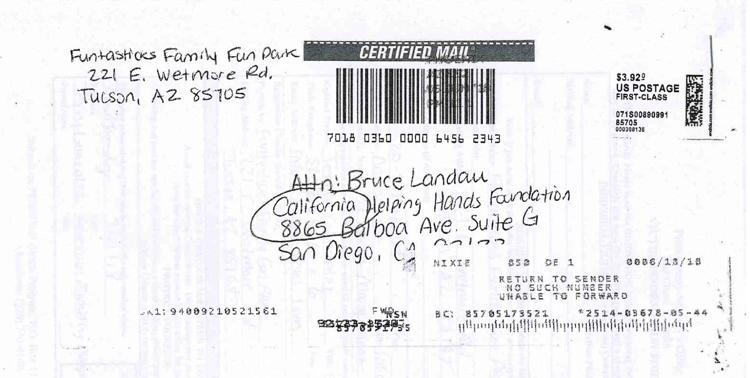 Funtasticks Family Fun Park
221 E. Wetmore Rd.
Tucson, AZ 85705
CERTIFIED MAIL
7018 0360 0000 6456 2343
$3.92⁰
US POSTAGE
FIRST-CLASS
071S00890991
85705
000008138
Attn: Bruce Landau
California Helping Hands Foundation
8865 Balboa Ave. Suite G
San Diego, CA
NIXIE 850 DE 1 0006/18/18
RETURN TO SENDER
NO SUCH NUMBER
UNABLE TO FORWARD
94009210521561
FWD
NSN
BC: 85705173521 *2514-03678-05-44